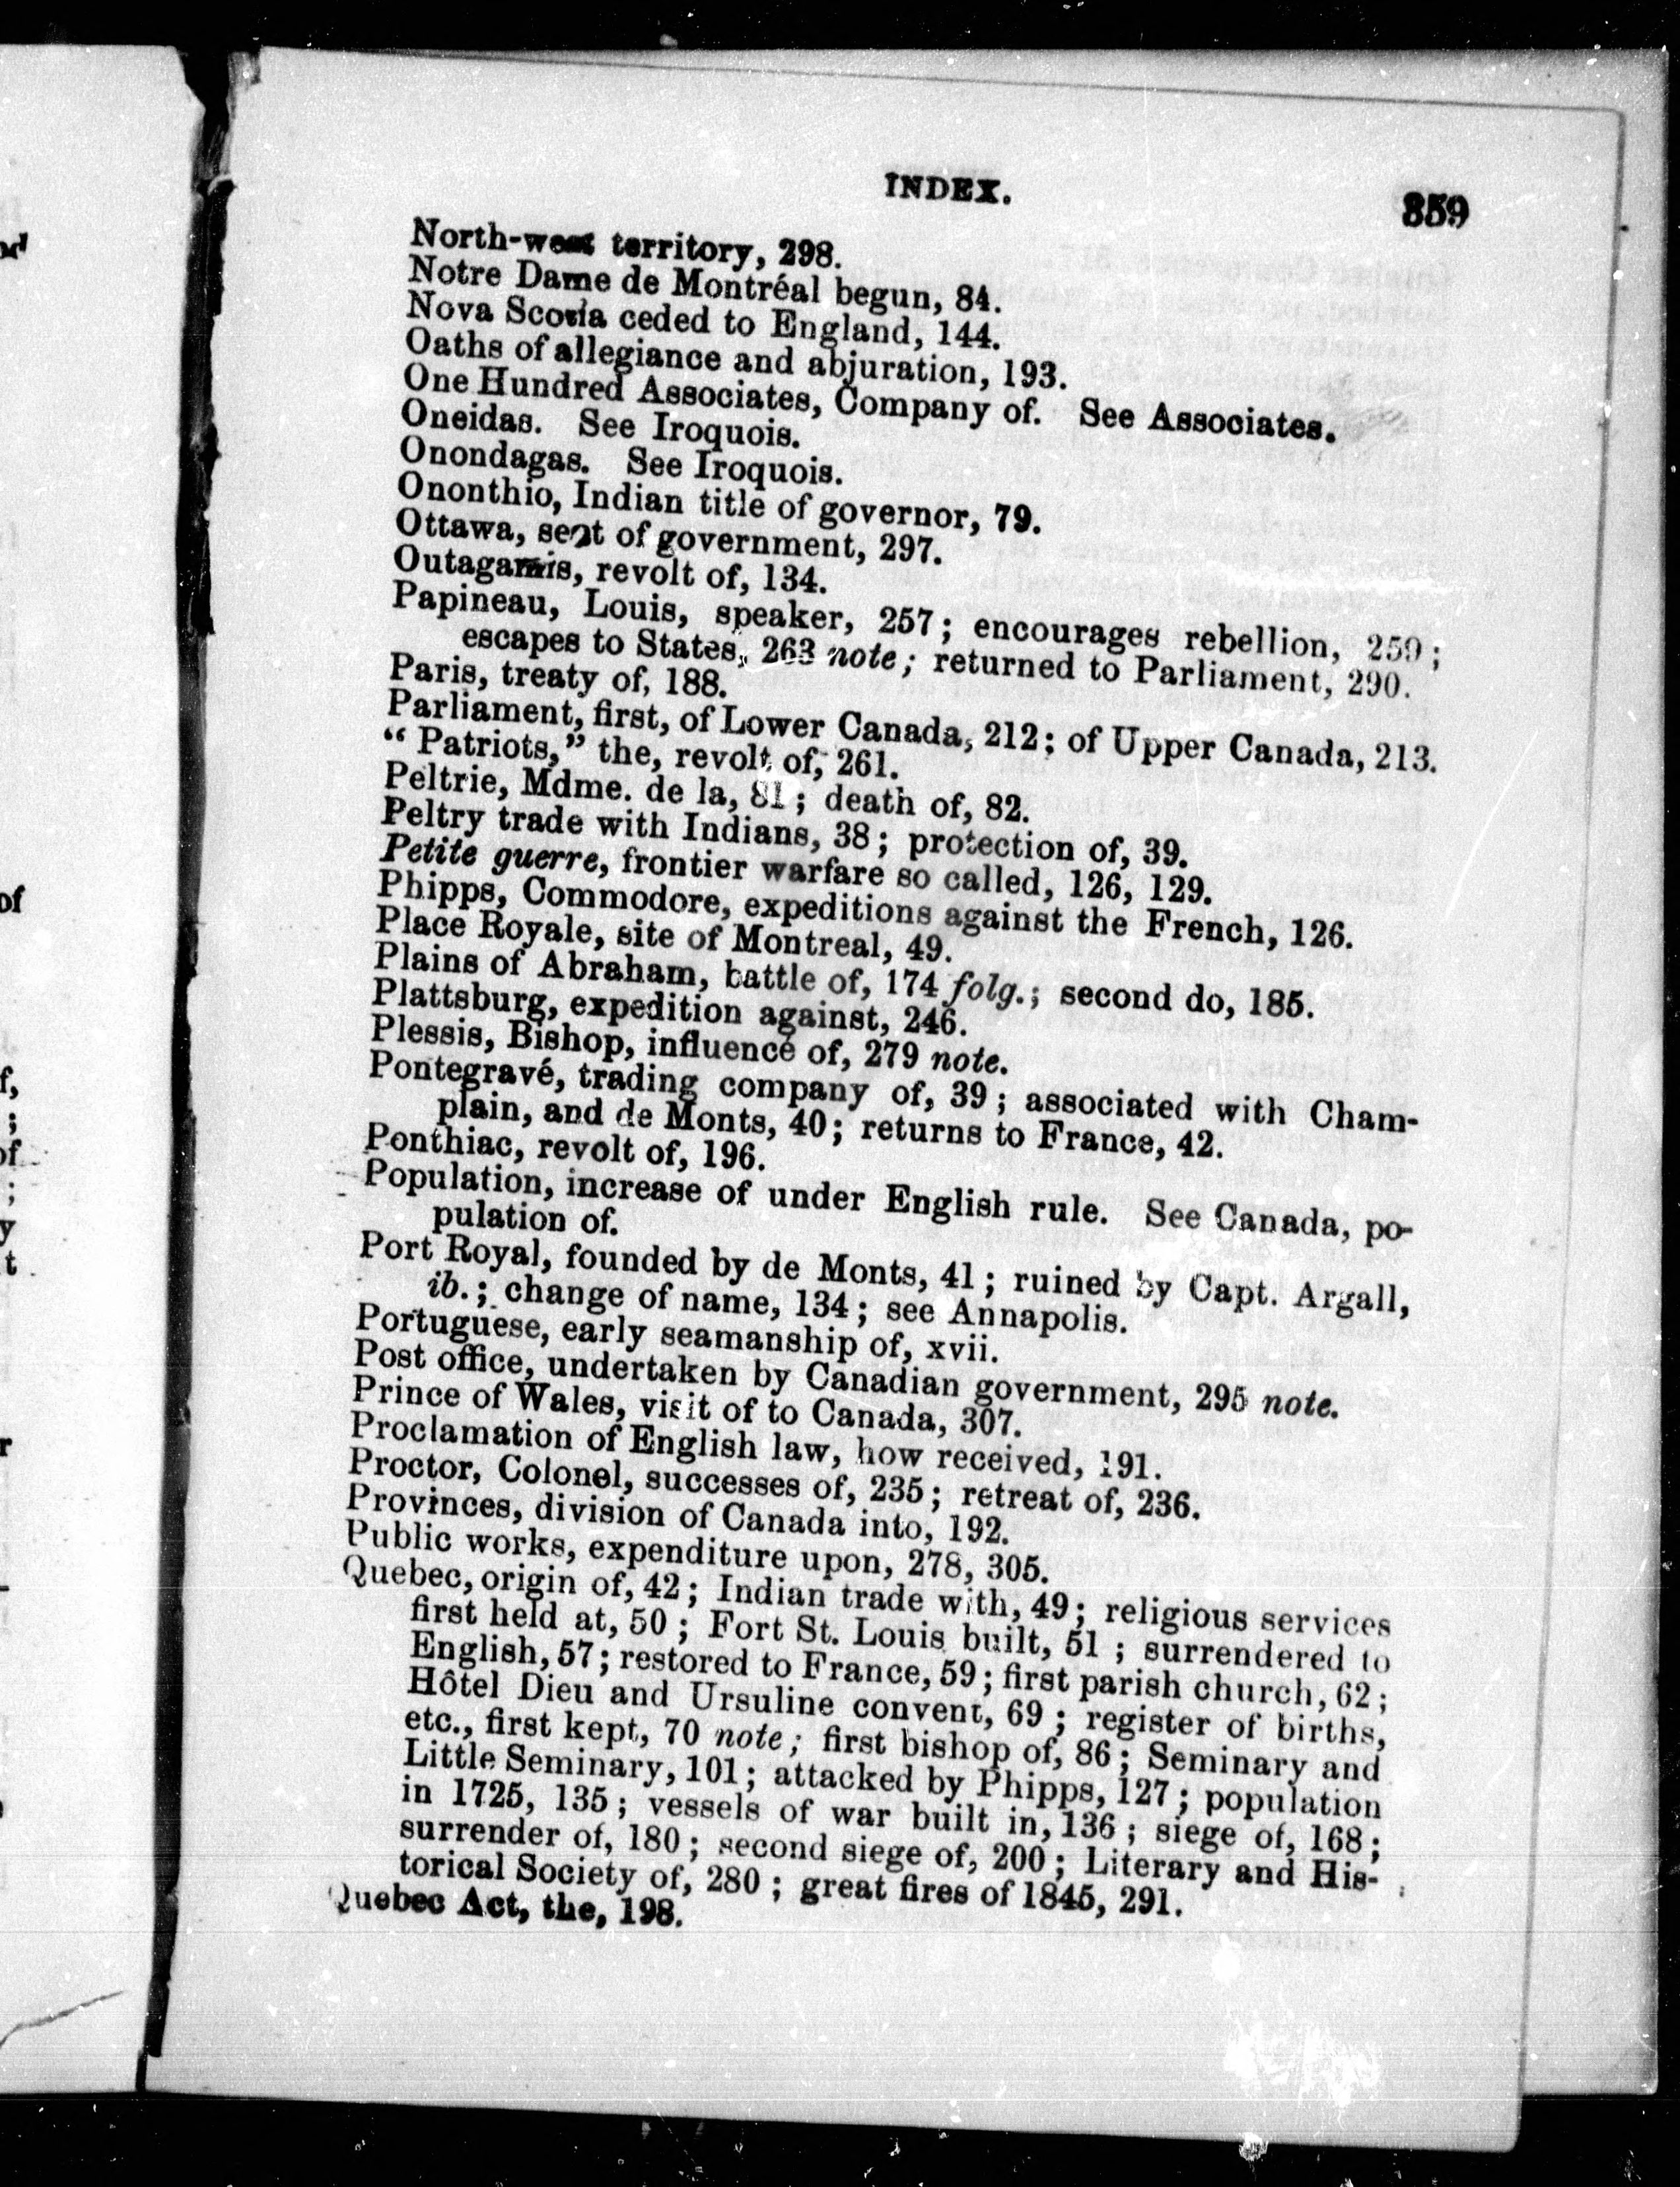 INDEX.
359
North-west territory, 298.
Notre Dame de Montréal begun, 84.
Nova Scotia ceded to England, 144.
Oaths of allegiance and abjuration, 193.
One Hundred Associates, Company of. See Associates.
Oneidas. See Iroquois.
Onondagas. See Iroquois.
Ononthio, Indian title of governor, 79.
Ottawa, seat of government, 297.
Outagamis, revolt of, 134.
Papineau, Louis, speaker, 257; encourages rebellion, 259;
escapes to States, 263 note; returned to Parliament, 290.
Paris, treaty of, 188.
Parliament, first, of Lower Canada, 212; of Upper Canada, 213.
"Patriots," the, revolt of, 261.
Peltrie, Mdme. de la, 81; death of, 82.
Peltry trade with Indians, 38; protection of, 39.
Petite guerre, frontier warfare so called, 126, 129.
Phipps, Commodore, expeditions against the French, 126.
Place Royale, site of Montreal, 49.
Plains of Abraham, battle of, 174 folg.; second do, 185.
Plattsburg, expedition against, 246.
Plessis, Bishop, influence of, 279 note.
Pontegravé, trading company of, 39; associated with Cham-
plain, and de Monts, 40; returns to France, 42.
Ponthiac, revolt of, 196.
Population, increase of under English rule. See Canada, po-
pulation of.
Port Royal, founded by de Monts, 41; ruined by Capt. Argall,
ib.; change of name, 134; see Annapolis.
Portuguese, early seamanship of, xvii.
Post office, undertaken by Canadian government, 295 note.
Prince of Wales, visit of to Canada, 307.
Proclamation of English law, how received, 191.
Proctor, Colonel, successes of, 235; retreat of, 236.
Provinces, division of Canada into, 192.
Public works, expenditure upon, 278, 305.
Quebec, origin of, 42; Indian trade with, 49; religious services
first held at, 50; Fort St. Louis built, 51; surrendered to
English, 57; restored to France, 59; first parish church, 62;
Hôtel Dieu and Ursuline convent, 69; register of births,
etc., first kept, 70 note; first bishop of, 86; Seminary and
Little Seminary, 101; attacked by Phipps, 127; population
in 1725, 135; vessels of war built in, 136; siege of, 168;
surrender of, 180; second siege of, 200; Literary and His-
torical Society of, 280; great fires of 1845, 291.
Quebec Act, the, 198.